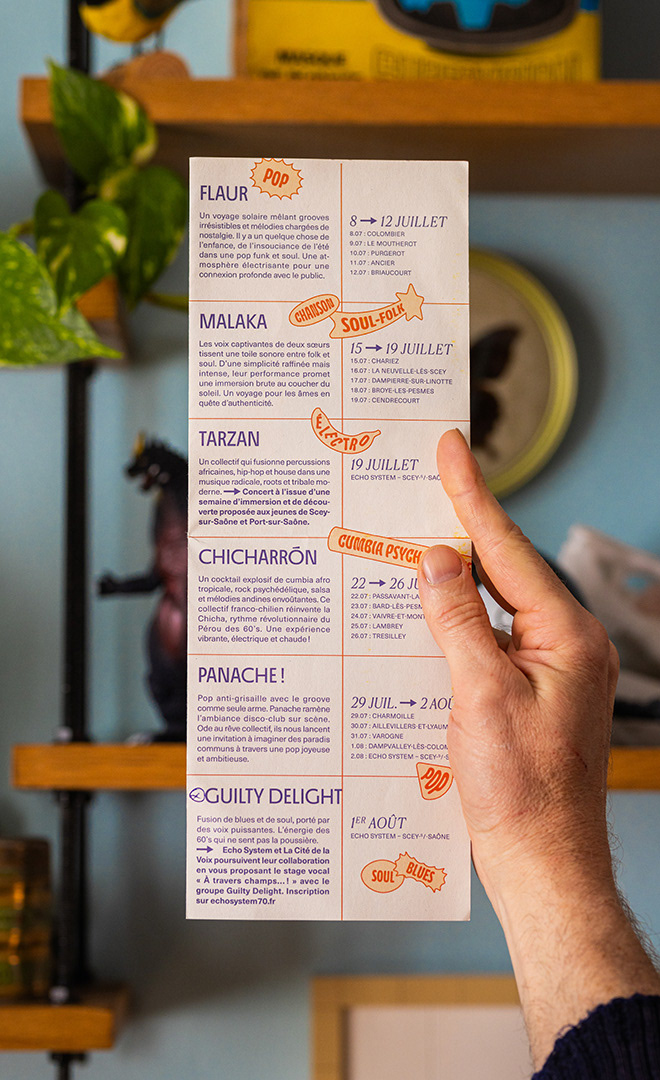 POP
FLAUR
Un voyage solaire mêlant grooves
irrésistibles et mélodies chargées de
nostalgie. Il y a un quelque chose de
l'enfance, de l'insouciance de l'été
dans une pop funk et soul. Une at-
mosphère électrisante pour une
connexion profonde avec le public.
8 → 12 JUILLET
8.07 : COLOMBIER
9.07 : LE MOUTHEROT
10.07 : PURGEROT
11.07 : ANCIER
12.07 : BRIAUCOURT
CHANSON
SOUL-FOLK
MALAKA
Les voix captivantes de deux sœurs
tissent une toile sonore entre folk et
soul. D'une simplicité raffinée mais
intense, leur performance promet
une immersion brute au coucher du
soleil. Un voyage pour les âmes en
quête d'authenticité.
15 → 19 JUILLET
15.07 : CHARIEZ
16.07 : LA NEUVELLE-LÈS-SCEY
17.07 : DAMPIERRE-SUR-LINOTTE
18.07 : BROYE-LES-PESMES
19.07 : CENDRECOURT
ÉLECTRO
TARZAN
Un collectif qui fusionne percussions
africaines, hip-hop et house dans une
musique radicale, roots et tribale mo-
derne. → Concert à l'issue d'une
semaine d'immersion et de décou-
verte proposée aux jeunes de Scey-
sur-Saône et Port-sur-Saône.
19 JUILLET
ECHO SYSTEM – SCEY-S/-SAÔ
CUMBIA PSYCH
CHICHARRÓN
Un cocktail explosif de cumbia afro
tropicale, rock psychédélique, salsa
et mélodies andines envoûtantes. Ce
collectif franco-chilien réinvente la
Chicha, rythme révolutionnaire du
Pérou des 60's. Une expérience
vibrante, électrique et chaude !
22 → 26 JU
22.07 : PASSAVANT-LA
23.07 : BARD-LÈS-PESM
24.07 : VAIVRE-ET-MONT
25.07 : LAMBREY
26.07 : TRESILLEY
PANACHE !
Pop anti-grisaille avec le groove
comme seule arme. Panache ramène
l'ambiance disco-club sur scène.
Ode au rêve collectif, ils nous lancent
une invitation à imaginer des paradis
communs à travers une pop joyeuse
et ambitieuse.
29 JUIL. → 2 AOÛ
29.07 : CHARMOILLE
30.07 : AILLEVILLERS-ET-LYAUM
31.07 : VAROGNE
1.08 : DAMPVALLEY-LÈS-COLOM
2.08 : ECHO SYSTEM – SCEY-S/-
POP
GUILTY DELIGHT
Fusion de blues et de soul, porté par
des voix puissantes. L'énergie des
60's qui ne sent pas la poussière.
→ Echo System et La Cité de la
Voix poursuivent leur collaboration
en vous proposant le stage vocal
« À travers champs... ! » avec le
groupe Guilty Delight. Inscription
sur echosystem70.fr
1ER AOÛT
ECHO SYSTEM – SCEY-S/-SAÔNE
SOUL
BLUES